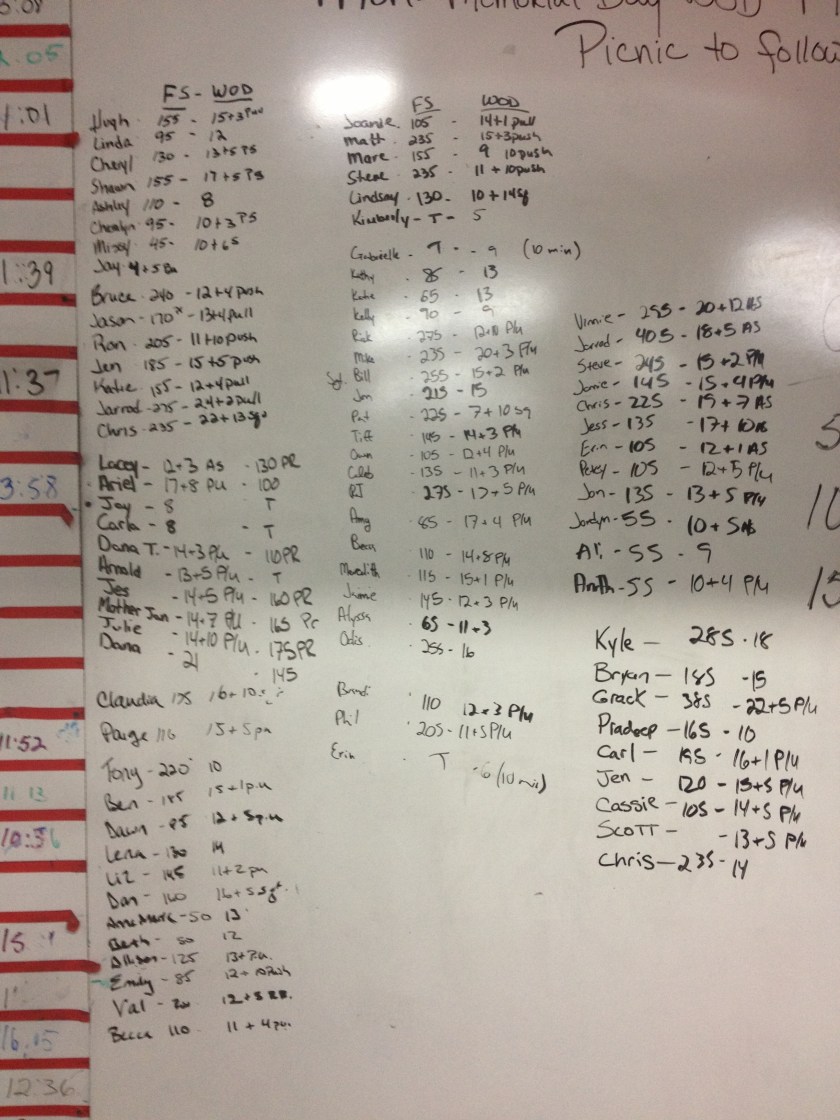 Memorial Day WOD
Picnic to follow
FS - WOD
Hugh 155 - 15+3
Linda 95 - 12
Cheryl 130 - 13+5 PS
Shawn 155 - 17+5 PS
Ashley 110 - 8
95 - 10+3 PS
Missy 45 - 10+6S
Jay
Bruce 240 - 12+4 push
Jason - 170 - 13+4 pull
Ron 205 - 11+10 push
Jen 185 - 15+5 push
Katie 155 - 12+4 pull
Jarrod - 275 - 24+2 pull
Chris 235 - 22+13 sq
Lacey - 12+3 AS - 130 PR
Ariel - 17+8 PU - 100
Jay - 8 T
Carla - 8 - T
Dana T. - 14+3 P/u - 110 PR
Arnold - 13+5 P/u - T
Jes - 14+5 P/u - 160 PR
Mother Jan - 14+7 PU - 165 Pr
Julie - 14+10 P/u - 175 PR
Dana - 21 - 145
Claudia 175 16+10
Paige 116 15+5 pu
Tony - 220 10
Ben - 185 15+1 p.u
Dawn - 95 12+5 p.u
Lena - 130 14
Liz - 145 11+2 pu
Dan - 160 16+5 sq
50 13
Beth - 50 12
Allison - 125
Emily - 85 12+10
Val - 12+5
Becca 110 11+4 pu
FS WOD
Joanne 105 - 14+1 pull
Matt 235 - 15+3 push
Marc 155 - 9 10 push
Steve 235 - 11+10 push
Lindsay 130 - 10+14 sq
Kimberly - T - 5
Gabrielle - T - 9 (10 min)
Kathy - 85 - 13
Katie - 65 - 13
Kelly - 90 - 9
Rick - 275 - 12+10 P/u
Mike - 235 - 20+3 P/u
Bill - 255 - 15+2 P/u
Jon - 215 - 15
Pat - 225 - 7+10 sq
Tiff - 145 - 14+3 P/u
Owen - 105 - 12+4 P/u
Caleb - 135 - 11+3 P/u
RJ - 275 - 17+5 P/u
Amy - 85 - 17+4 P/u
Becca 110 - 14+8 P/u
Meredith - 115 - 15+1 P/u
Jaime - 145 - 12+3 P/u
Alyssa - 65 - 11+3
Odis - 255 - 16
Brandi 110 12+3 P/u
Phil 205 - 11+5 P/u
Erin - T - 6 (10 min)
Vinnie - 255 - 20+12
Jarrod - 405 - 18+5 AS
Steve - 245 - 15+2 P/u
Jamie - 145 - 15+4 P/u
Chris - 225 - 19+7 AS
Jess - 135 - 17+10
Erin - 105 - 12+1 AS
105 - 12+5 P/u
Jon - 135 - 13+5 P/u
Jordyn - 55 - 10+5
Ali - 55 - 9
Anth - 55 - 10+4 P/u
Kyle - 285 - 18
Bryan - 185 - 15
Grack - 385 - 22+5 P/u
Pradeep - 165 - 10
Carl - 195 - 16+1 P/u
Jen - 120 - 15+5 P/u
Cassie - 105 - 14+5 P/u
Scott - - 13+5 P/u
Chris - 235 - 14
1:01
1:39
1:37
3:58
11:52
11 13
10:56
16.15
12:36